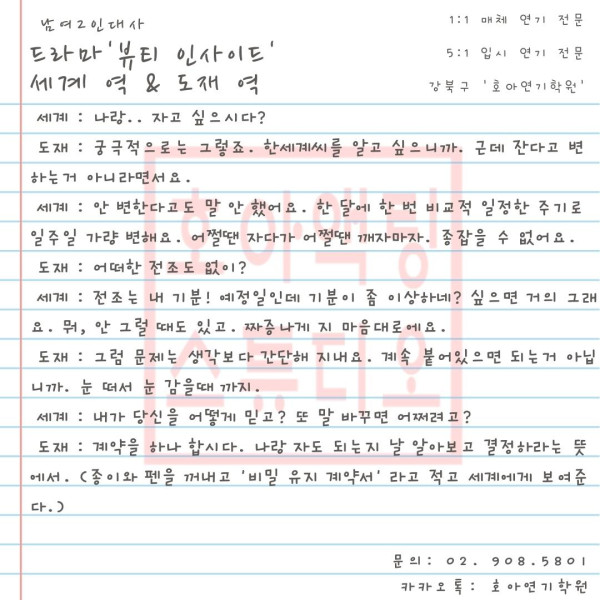 남여2인대사
드라마 '뷰티 인사이드'
세계 역 & 도재 역
1:1 매체 연기 전문
5:1 입시 연기 전문
강북구 '호아연기학원'
세계 : 나랑.. 자고 싶으시다?
도재 : 궁극적으로는 그렇죠. 한세계씨를 알고 싶으니까. 근데 잔다고 변
하는거 아니라면서요.
세계 : 안 변한다고도 말 안 했어요. 한 달에 한 번 비교적 일정한 주기로
일주일 가량 변해요. 어쩔땐 자다가 어쩔땐 깨자마자. 종잡을 수 없어요.
도재 : 어떠한 전조도 없이?
세계 : 전조는 내 기분! 예정일인데 기분이 좀 이상하네? 싶으면 거의 그래
요. 뭐, 안 그럴 때도 있고. 짜증나게 지 마음대로에요.
도재 : 그럼 문제는 생각보다 간단해 지내요. 계속 붙어있으면 되는거 아닙
니까. 눈 떠서 눈 감을때 까지.
세계 : 내가 당신을 어떻게 믿고? 또 말 바꾸면 어쩌려고?
도재 : 계약을 하나 합시다. 나랑 자도 되는지 날 알아보고 결정하라는 뜻
에서. (종이와 펜을 꺼내고 '비밀 유지 계약서' 라고 적고 세계에게 보여준
다.)
호아액팅
스튜디오
문의: 02. 908.5801
카카오톡: 호아연기학원